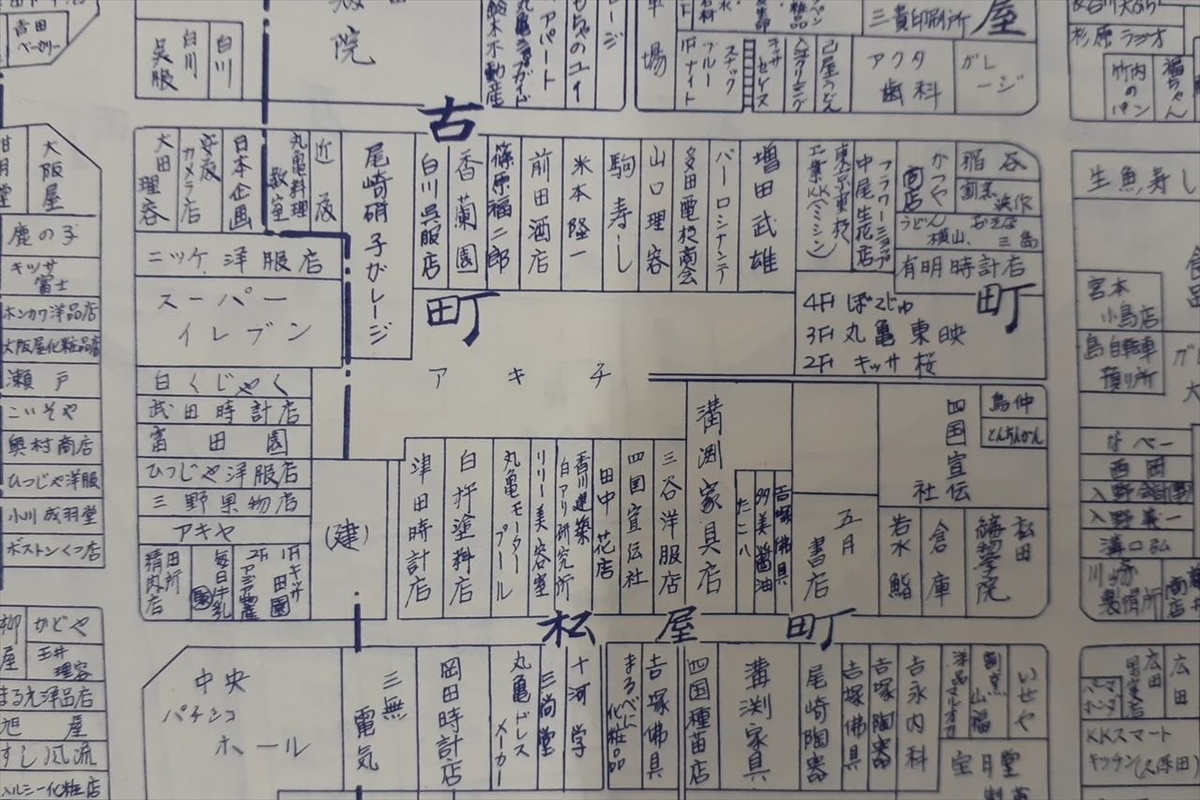 吉田
ベーカリー
白川
呉服
白川
院
丸亀
アパート
鈴木不動産
場
スナック
ブルー
ナイト
己屋うどん
三貴印刷所
屋
アクタ
歯科
ガレージ
杉原ラジオ
竹内のパン
福ちゃん
古
町
大阪屋
鹿の子
キッサ
富士
ホンカワ洋品店
大阪屋化粧品店
瀬戸
こいそや
奥村商店
ひつじや洋服
小川成羽堂
ボストンくつ店
大田理容
カメラ店
日本企画
丸亀料理
教室
尾崎硝子ガレージ
白川呉服店
香蘭園
篠原福二郎
前田酒店
米本隆一
駒寿し
山口理容
多田電機商会
バーロシナンテ
増田武雄
工業KK(ミシン)
フラワーショップ
中尾生花店
かつや
商店
稲谷
割烹
うどん
横山
おそば
三島
有明時計店
町
4F ぼてじゅ
3F 丸亀東映
2F キッサ桜
ニッケ洋服店
スーパー
イレブン
アキチ
白くじゃく
武田時計店
富田園
ひつじや洋服店
三野果物店
アキヤ
田所
精肉店
毎日牛乳
2F
1Fキッサ
田園
(建)
津田時計店
臼杵塗料店
丸亀モータープール
リリー美容室
香川建築
白アリ研究所
田中花店
四国宣伝社
三谷洋服店
溝渕家具店
たこ八
多美醤油
吉塚佛具
五月
書店
四国宣伝
社
鳥仲
とんちんかん
岩水鮨
倉庫
松田
生魚寿し
宮本
小鳥店
島自転車
預り所
なべー
西岡
入野会計
入野義一
溝口弘
商店
松屋町
柳屋
かどや
玉井
理容
まる尤洋品店
旭屋
すし風流
ヘルシー化粧店
中央
パチンコ
ホール
三無
電気
岡田時計店
丸亀ドレス
メーカー
三尚堂
十河学
まるべに
化粧品
吉塚佛具
四国種苗店
溝渕家具
尾崎陶器
吉塚佛具
吉塚陶器
吉永内科
洋品マルオカ
割烹
山福
いせや
宝月堂
広田
広田
KKスマート
キッチン(久保田)